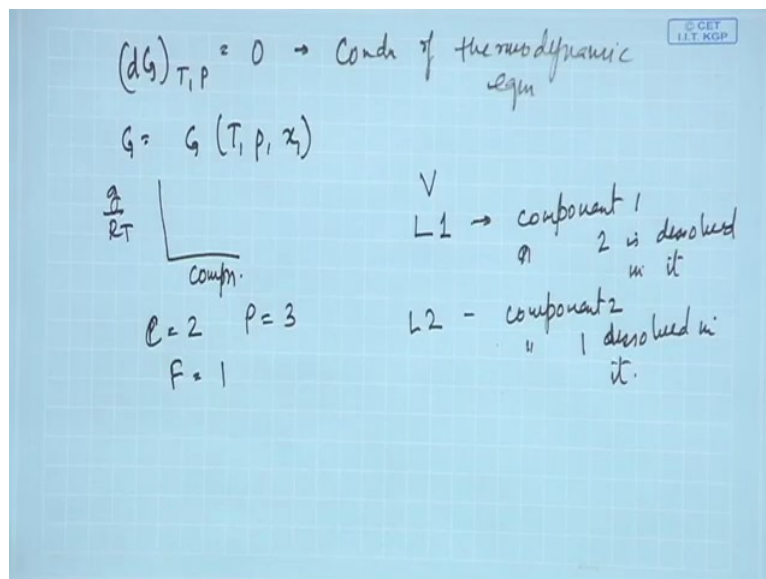 © CET
I.I.T. KGP
(dG)T,P = 0 → Condn of thermodynamic
eqm
G = G (T, P, x1)
g/RT
Compn.
C = 2 P = 3
F = 1
V
L1 → component 1
" 2 is dissolved
in it
L2 - component 2
" 1 dissolved in
it.